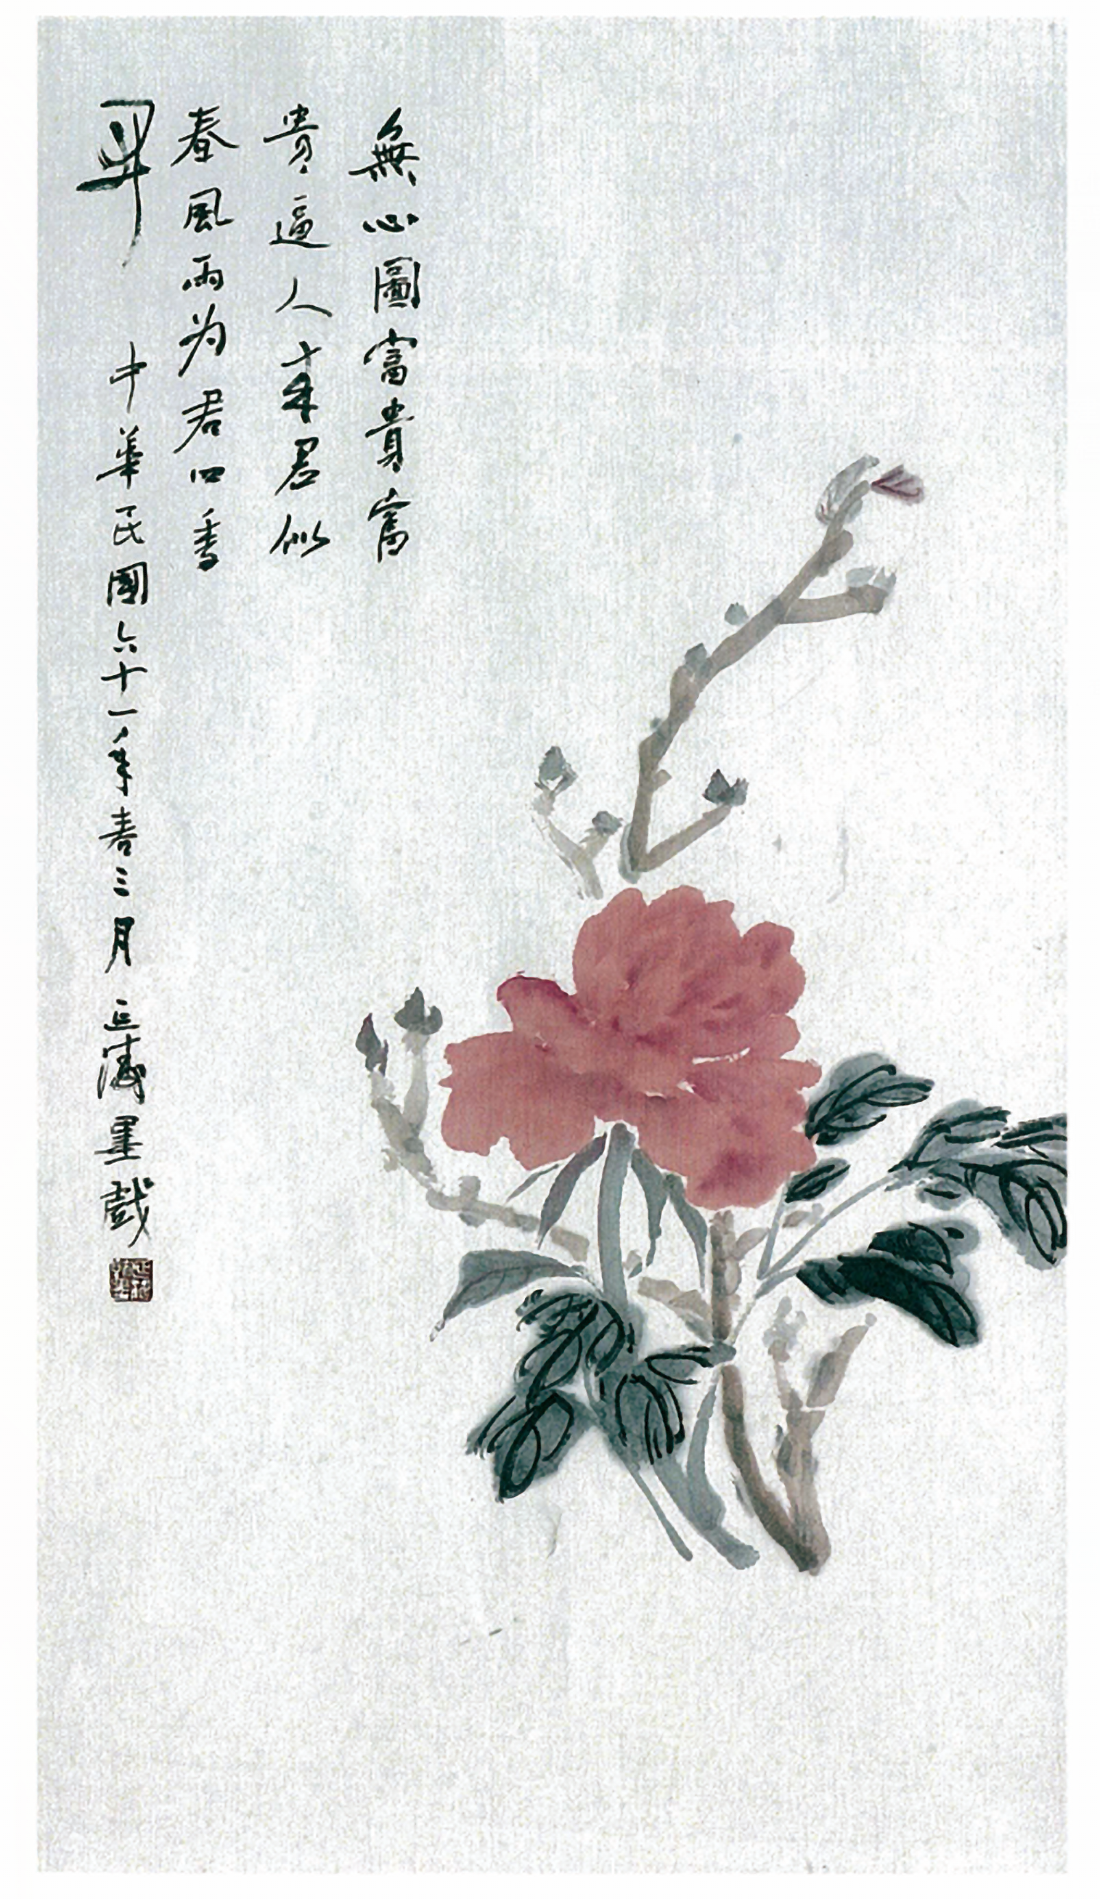 無心圖富貴富
貴逼人來君似
春風雨为君香
中華民國六十一年春三月正濤墨戲